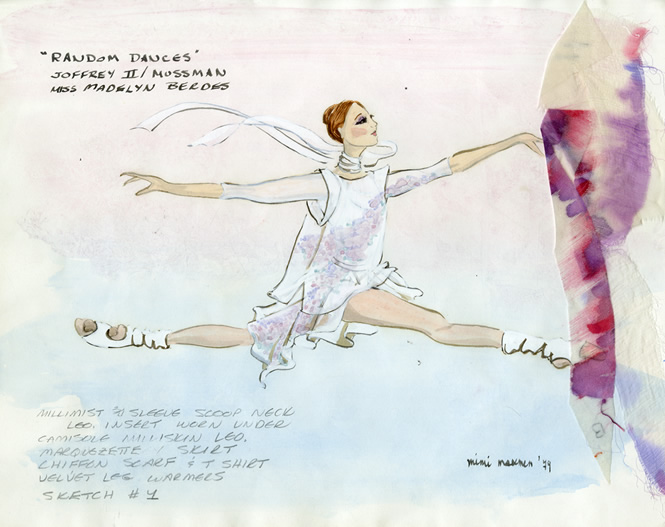 "RANDOM DANCES"
JOFFREY II / MUSSMAN
MISS MADELYN BERDES
MILLIMIST 3/4 SLEEVE SCOOP NECK
LEO. INSERT WORN UNDER
CAMISOLE MILLISKIN LEO.
MARQUEZETTE SKIRT
CHIFFON SCARF & T SHIRT
VELVET LEG WARMERS
SKETCH # 1
mimi maxmen '79